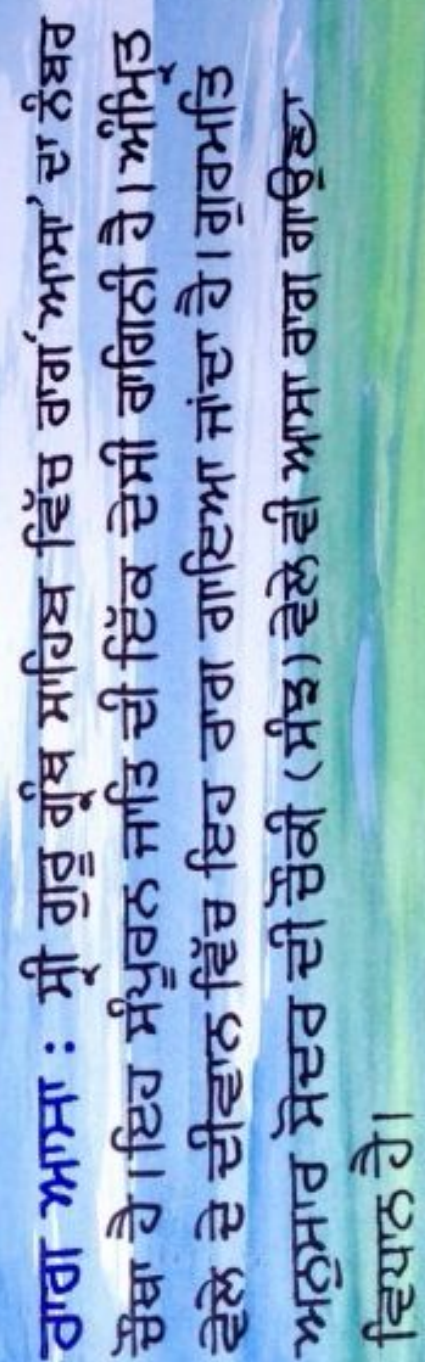 ਰਾਗ ਆਸਾ : ਸ੍ਰੀ ਗੁਰੂ ਗ੍ਰੰਥ ਸਾਹਿਬ ਵਿੱਚ ਰਾਗ ,ਆਸਾ, ਦਾ ਨੰਬਰ
ਚੌਥਾ ਹੈ। ਇਹ ਸੰਪੂਰਨ ਜਾਤਿ ਦੀ ਇੱਕ ਦੇਸੀ ਰਾਗਿਨੀ ਹੈ। ਅੰਮ੍ਰਿਤ
ਵੇਲੇ ਦੇ ਦੀਵਾਨ ਵਿੱਚ ਇਹ ਰਾਗ ਗਾਇਆ ਜਾਂਦਾ ਹੈ। ਗੁਰਮਤਿ
ਅਨੁਸਾਰ ਸੋਦਰ ਦੀ ਚੌਕੀ ( ਸੰਝ ) ਵੇਲੇ ਵੀ ਆਸਾ ਰਾਗ ਗਾਉਣਾ
ਵਿਧਾਨ ਹੈ।